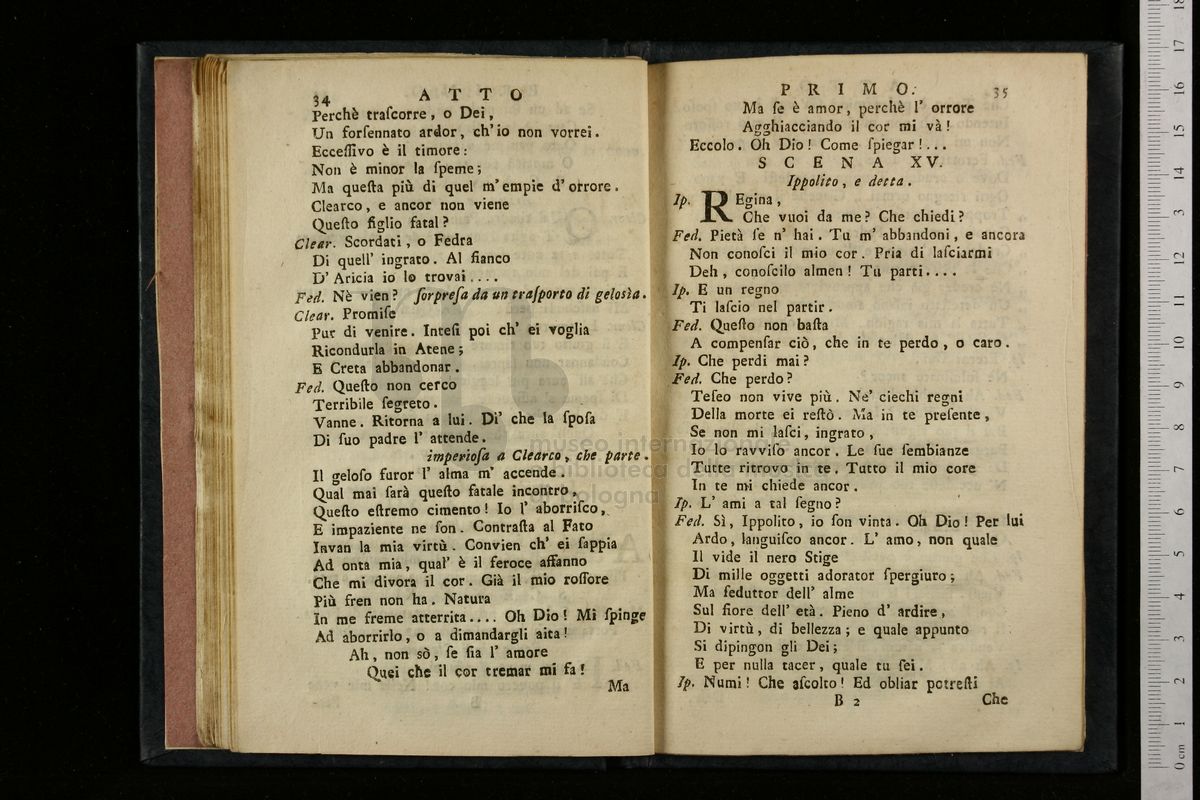 34 ATTO
Perchè traſcorre, o Dei,
Un forſennato ardor, ch'io non vorrei.
Ecceſſivo è il timore:
Non è minor la ſpeme;
Ma queſta più di quel m'empie d'orrore.
Clearco, e ancor non viene
Queſto figlio fatal?
Clear. Scordati, o Fedra
Di quell' ingrato. Al fianco
D' Aricia io lo trovai....
Fed. Nè vien? ſorpreſa da un traſporto di gelosìa.
Clear. Promiſe
Pur di venire. Inteſi poi ch' ei voglia
Ricondurla in Atene;
E Creta abbandonar.
Fed. Queſto non cerco
Terribile ſegreto.
Vanne. Ritorna a lui. Di' che la ſpoſa
Di ſuo padre l' attende.
imperioſa a Clearco, che parte.
Il geloſo furor l' alma m' accende.
Qual mai ſarà queſto fatale incontro,
Queſto eſtremo cimento! Io l' aborriſco,
E impaziente ne ſon. Contraſta al Fato
Invan la mia virtù. Convien ch' ei ſappia
Ad onta mia, qual' è il feroce affanno
Che mi divora il cor. Già il mio roſſore
Più fren non ha. Natura
In me freme atterrita.... Oh Dio! Mi ſpinge
Ad aborrirlo, o a dimandargli aita!
Ah, non sò, ſe ſia l' amore
Quei che il cor tremar mi fa!
Ma
PRIMO. 35
Ma ſe è amor, perchè l' orrore
Agghiacciando il cor mi và!
Eccolo. Oh Dio! Come ſpiegar!...
SCENA XV.
Ippolito, e detta.
Ip. REgina,
Che vuoi da me? Che chiedi?
Fed. Pietà ſe n' hai. Tu m' abbandoni, e ancora
Non conoſci il mio cor. Pria di laſciarmi
Deh, conoſcilo almen! Tu parti....
Ip. E un regno
Ti laſcio nel partir.
Fed. Queſto non baſta
A compenſar ciò, che in te perdo, o caro.
Ip. Che perdi mai?
Fed. Che perdo?
Teſeo non vive più. Ne' ciechi regni
Della morte ei reſtò. Ma in te preſente,
Se non mi laſci, ingrato,
Io lo ravviſo ancor. Le ſue ſembianze
Tutte ritrovo in te. Tutto il mio core
In te mi chiede ancor.
Ip. L' ami a tal ſegno?
Fed. Sì, Ippolito, io ſon vinta. Oh Dio! Per lui
Ardo, languiſco ancor. L' amo, non quale
Il vide il nero Stige
Di mille oggetti adorator ſpergiuro;
Ma ſeduttor dell' alme
Sul fiore dell' età. Pieno d' ardire,
Di virtù, di bellezza; e quale appunto
Si dipingon gli Dei;
E per nulla tacer, quale tu ſei.
Ip. Numi! Che aſcolto! Ed obliar potreſti
B 2 Che
museo internazionale
biblioteca della musica
bologna
0 cm 1 2 3 4 5 6 7 8 9 10 11 12 13 14 15 16 17 18